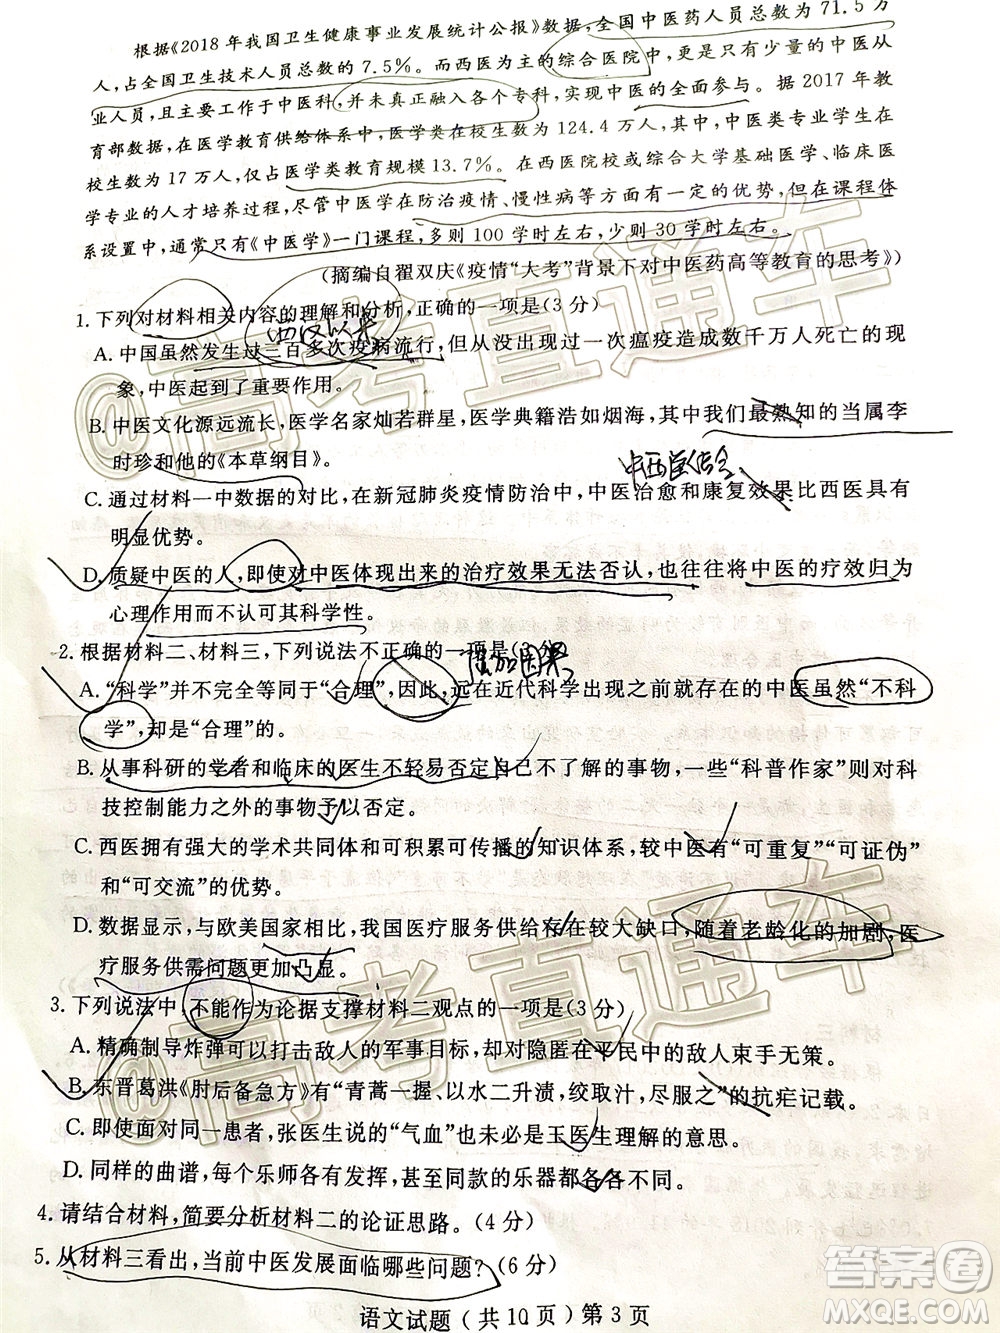 根据《2018年我国卫生健康事业发展统计公报》数据，全国中医药人员总数为71.5万
人，占全国卫生技术人员总数的7.5%。而西医为主的综合医院中，更是只有少量的中医从
业人员，且主要工作于中医科，并未真正融入各个专科，实现中医的全面参与。据2017年教
育部数据，在医学教育供给体系中，医学类在校生总数为124.4万人，其中，中医类专业学生在
校生总数为17万人，仅占医学类教育规模13.7%。在西医院校或综合大学基础医学、临床医
学专业的人才培养过程，尽管中医学在防治疫情、慢性病等方面有一定的优势，但在课程体
系设置中，通常只有《中医学》一门课程，多则100学时左右，少则30学时左右。
（摘编自翟双庆《疫情“大考”背景下对中医药高等教育的思考》）
1.下列对材料相关内容的理解和分析，正确的一项是（3分）
西汉以来
A.中国虽然发生过三百多次疫病流行，但从没出现过一次瘟疫造成数千万人死亡的现
象，中医起到了重要作用。
B.中医文化源远流长，医学名家灿若群星，医学典籍浩如烟海，其中我们最熟知的当属李
时珍和他的《本草纲目》。
C.通过材料一中数据的对比，在新冠肺炎疫情防治中，中医治愈和康复效果比西医具有
明显优势。
D.质疑中医的人，即使对中医体现出来的治疗效果无法否认，也往往将中医的疗效归为
心理作用而不认可其科学性。
2.根据材料二、材料三，下列说法不正确的一项是（3分）
A.“科学”并不完全等同于“合理”，因此，远在近代科学出现之前就存在的中医虽然“不科
学”，却是“合理”的。
B.从事科研的学者和临床的医生不轻易否定自己不了解的事物，一些“科普作家”则对科
技控制能力之外的事物予以否定。
C.西医拥有强大的学术共同体和可积累可传播的知识体系，较中医有“可重复”“可证伪”
和“可交流”的优势。
D.数据显示，与欧美国家相比，我国医疗服务供给存在较大缺口，随着老龄化的加剧，医
疗服务供需问题更加凸显。
3.下列说法中，不能作为论据支撑材料二观点的一项是（3分）
A.精确制导炸弹可以打击敌人的军事目标，却对隐匿在平民中的敌人束手无策。
B.东晋葛洪《肘后备急方》有“青蒿一握，以水二升渍，绞取汁，尽服之”的抗疟记载。
C.即使面对同一患者，张医生说的“气血”也未必是王医生理解的意思。
D.同样的曲谱，每个乐师各有发挥，甚至同款的乐器都各各不同。
4.请结合材料，简要分析材料二的论证思路。（4分）
5.从材料三看出，当前中医发展面临哪些问题？（6分）
语文试题（共10页）第3页
@高考直通车
@高考直通车
答案圈
MXQE.COM